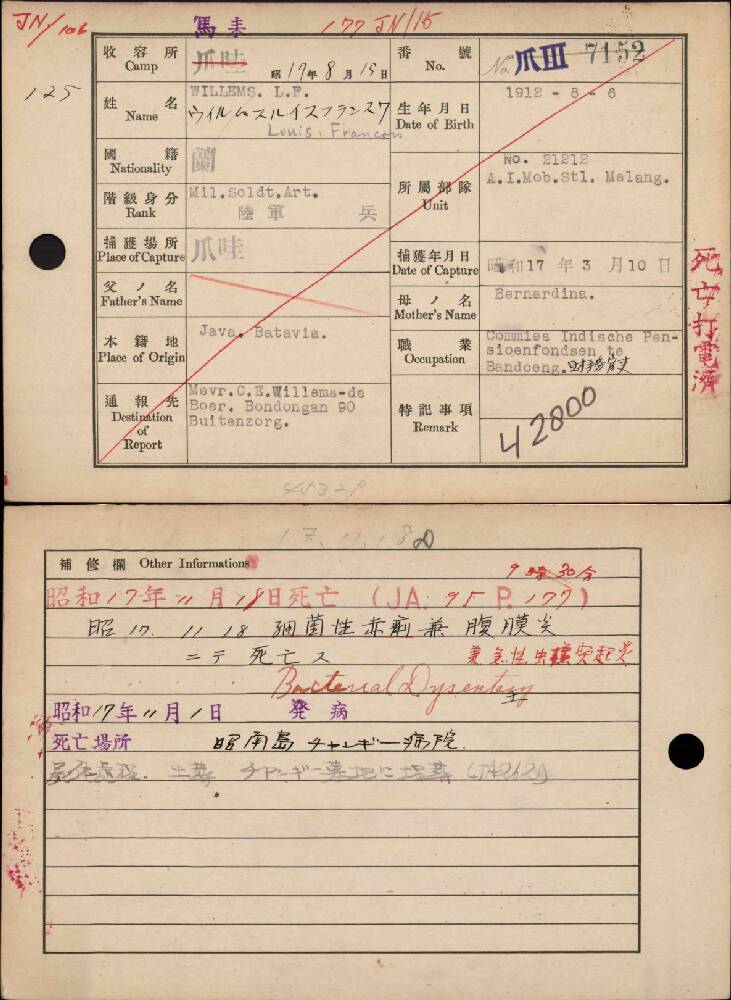 JN/106
馬来
177 JN/15
125
收容所 Camp
爪哇
昭17年8月15日
番號 No.
No. 爪III 7152
姓名 Name
WILLEMS. L.F.
ウィルムスルイスフランスワ
Louis. Francois
生年月日 Date of Birth
1912 - 8 - 6
國籍 Nationality
蘭
所屬部隊 Unit
No. 21212
A.I.Mob.Stl. Malang.
階級身分 Rank
Mil.Soldt.Art.
陸軍 兵
捕獲場所 Place of Capture
爪哇
捕獲年月日 Date of Capture
昭和17年3月10日
父ノ名 Father's Name
母ノ名 Mother's Name
Bernardina.
本籍地 Place of Origin
Java, Batavia.
職業 Occupation
Commies Indische Pen-
sioenfondsen te
Bandoeng.
通報先 Destination of Report
Mevr.C.E.Willems-de
Boer. Bondongan 90
Buitenzorg.
特記事項 Remark
42800
死亡打電濟
17.11.18
補修欄 Other Informations
9時30分
昭和17年11月18日死亡 (JA. 95 P. 177)
昭17. 11 18 細菌性赤痢兼腹膜炎
ニテ 死亡ス
兼急性虫様突起炎
Bacterial Dysentery
昭和17年11月1日 発病
死亡場所 昭南島チャンギー病院.
土葬 チャンギー墓地に埋葬